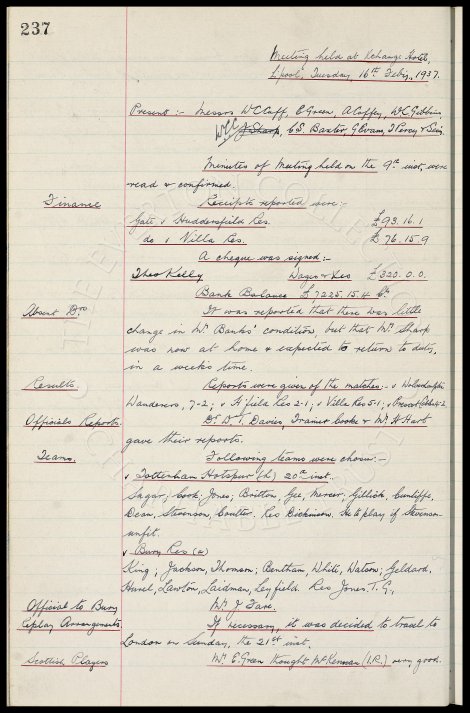 237
Meeting held at Exchange Hotel,
L'pool, Tuesday, 16th Feb'y, 1937.
Present :- Messrs W.C. Cuff, E. Green, A. Coffey, W.C. Gibbins,
WCC J. Sharp, C.S. Baxter, G. Evans, & Sec.
Minutes of Meeting held on the 9th inst. were
read & confirmed.
Finance Receipts reported were:-
Gate v Huddersfield Res. £93.16.1
do v Villa Res. £76.15.9
A cheque was signed:-
Theo Kelly Wages & Fees £320.0.0.
Bank Balance £7225.15.4 Cr.
Absent Dtrs It was reported that there was little
change in Mr. Banks' condition, but that Mr. Sharp
was now at home & expected to return to duty,
in a weeks time.
Results Reports were given of the matches:- v Wolverhampton
Wanderers, 7-2; v H'field Res 2-1; v Villa Res 5-1; v Prescot Cables 4-2
Officials Reports. Dr. D.T. Davies, Trainer Cooke & Mr. H. Hart
gave their reports.
Teams. Following teams were chosen:-
v Tottenham Hotspur (h) 20th inst.
Sagar; Cook, Jones; Britton, Gee, Mercer; Gillick, Cunliffe,
Dean, Stevenson, Coulter. Res Dickinson. He to play if Stevenson
unfit.
v Bury Res (a)
King; Jackson, Thomson; Bentham, White, Watson; Geldard,
Hurel, Lawton, Laidman, Leyfield. Res Jones. T.G.
Official to Bury Mr. J. Fare.
Replay Arrangements. If necessary, it was decided to travel to
London on Sunday, the 21st inst.
Scottish Players Mr. E. Green thought McKennan (I.R.) very good.